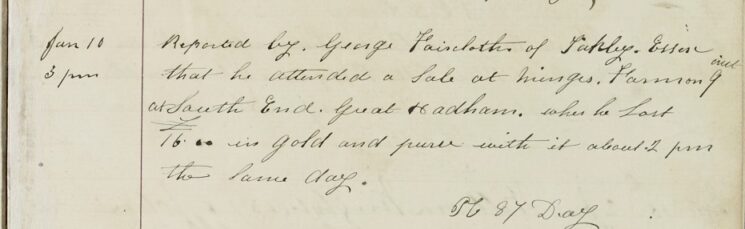 Jan 10 Reported by. George Faircloths of Takley. Essex
3 pm that he attended a Sale at Minges. Farm on 9 inst
at South End. Great Hadham. when he Lost
£16 in Gold and purse with it about 2 pm
the same day.
PC 87 Day